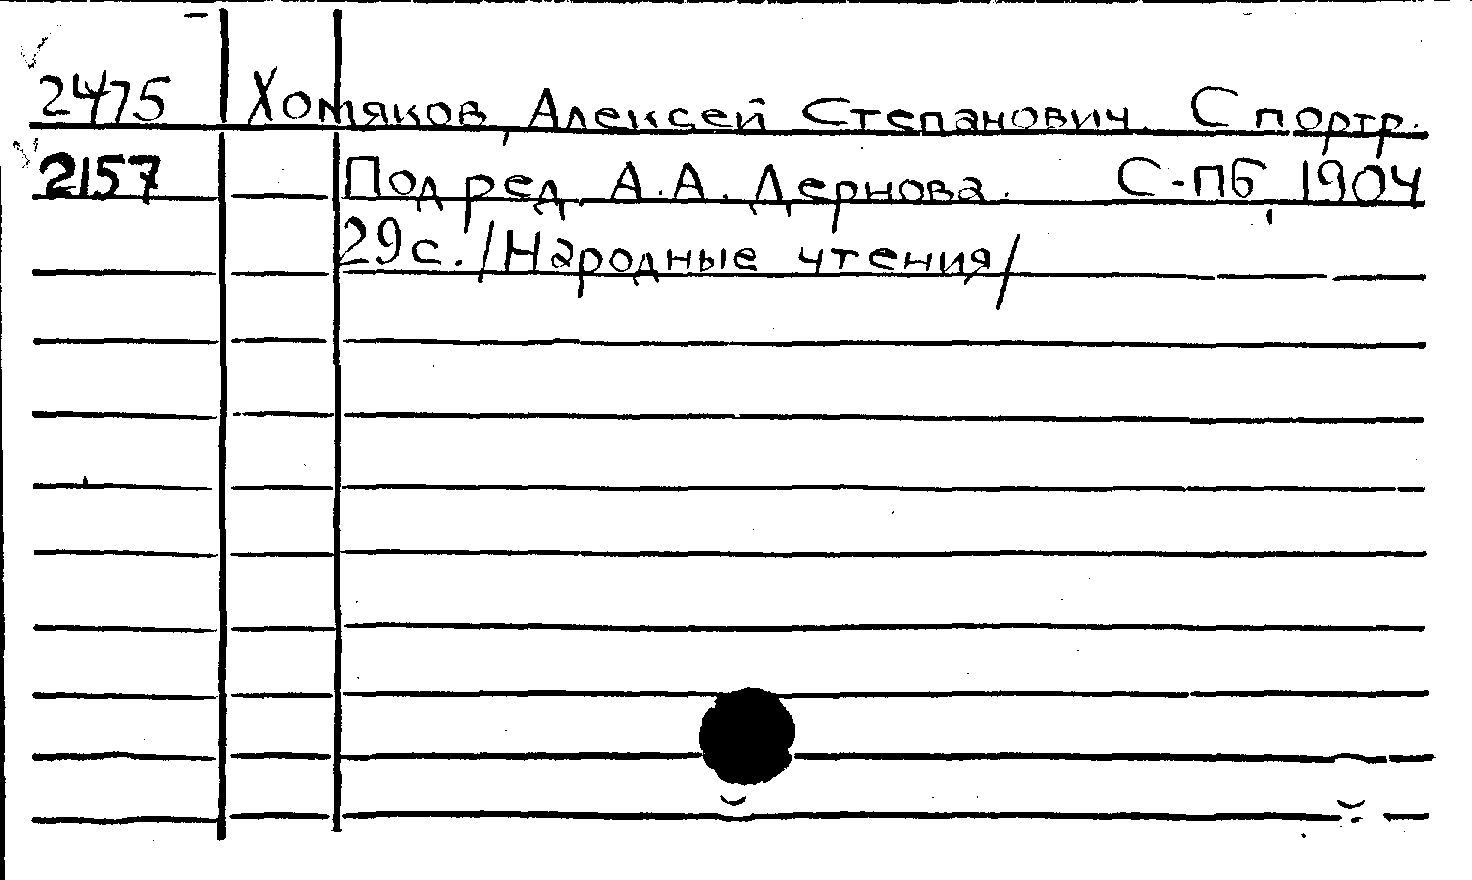 2475 Хомяков, Алексей Степанович. С портр.
2157 Под ред. А.А. Дернова. С-пб, 1904
29с. /Народные чтения/